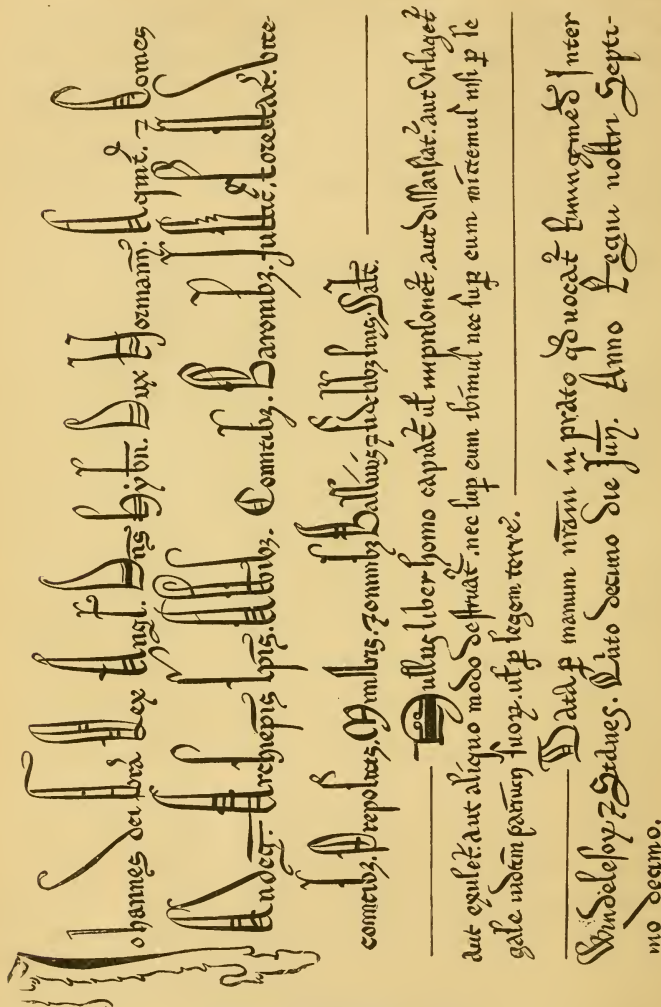 Johannes dei gr̃a Rex Angł. Dñs Hybñ. Dux Normañ. Aqmt̃. ⁊ Comes
Andeg̃. Archiepis̃. Ep̃is. Abbibȝ. Comitibȝ. Baronibȝ. Justic̃. Forestar̃. vice-
comitibȝ. Prepositis. Ministris. ⁊ omnibȝ Ballivis ⁊ fidelibȝ suis. Salt̃.
Nullus liber homo capiat̃ ut̃ imprisonet̃, aut dissaisiat̃. aut utlaget̃
aut exulet̃. aut aliquo modo destruat̃. nec sup̃ eum ibimus nec sup̃ eum mittemus nisi p̱ le
gale iudiciñ pariuɱ suoꝝ. ut̃ p̱ legem terre.
Data p̱ manum nr̃am in prato qd̃ vocat̃ Runingmed̃ Inter
Windelesoꝝ ⁊ Stanes. Quito decimo die Juñ. Anno Regni nostri Septi-
mo decimo.